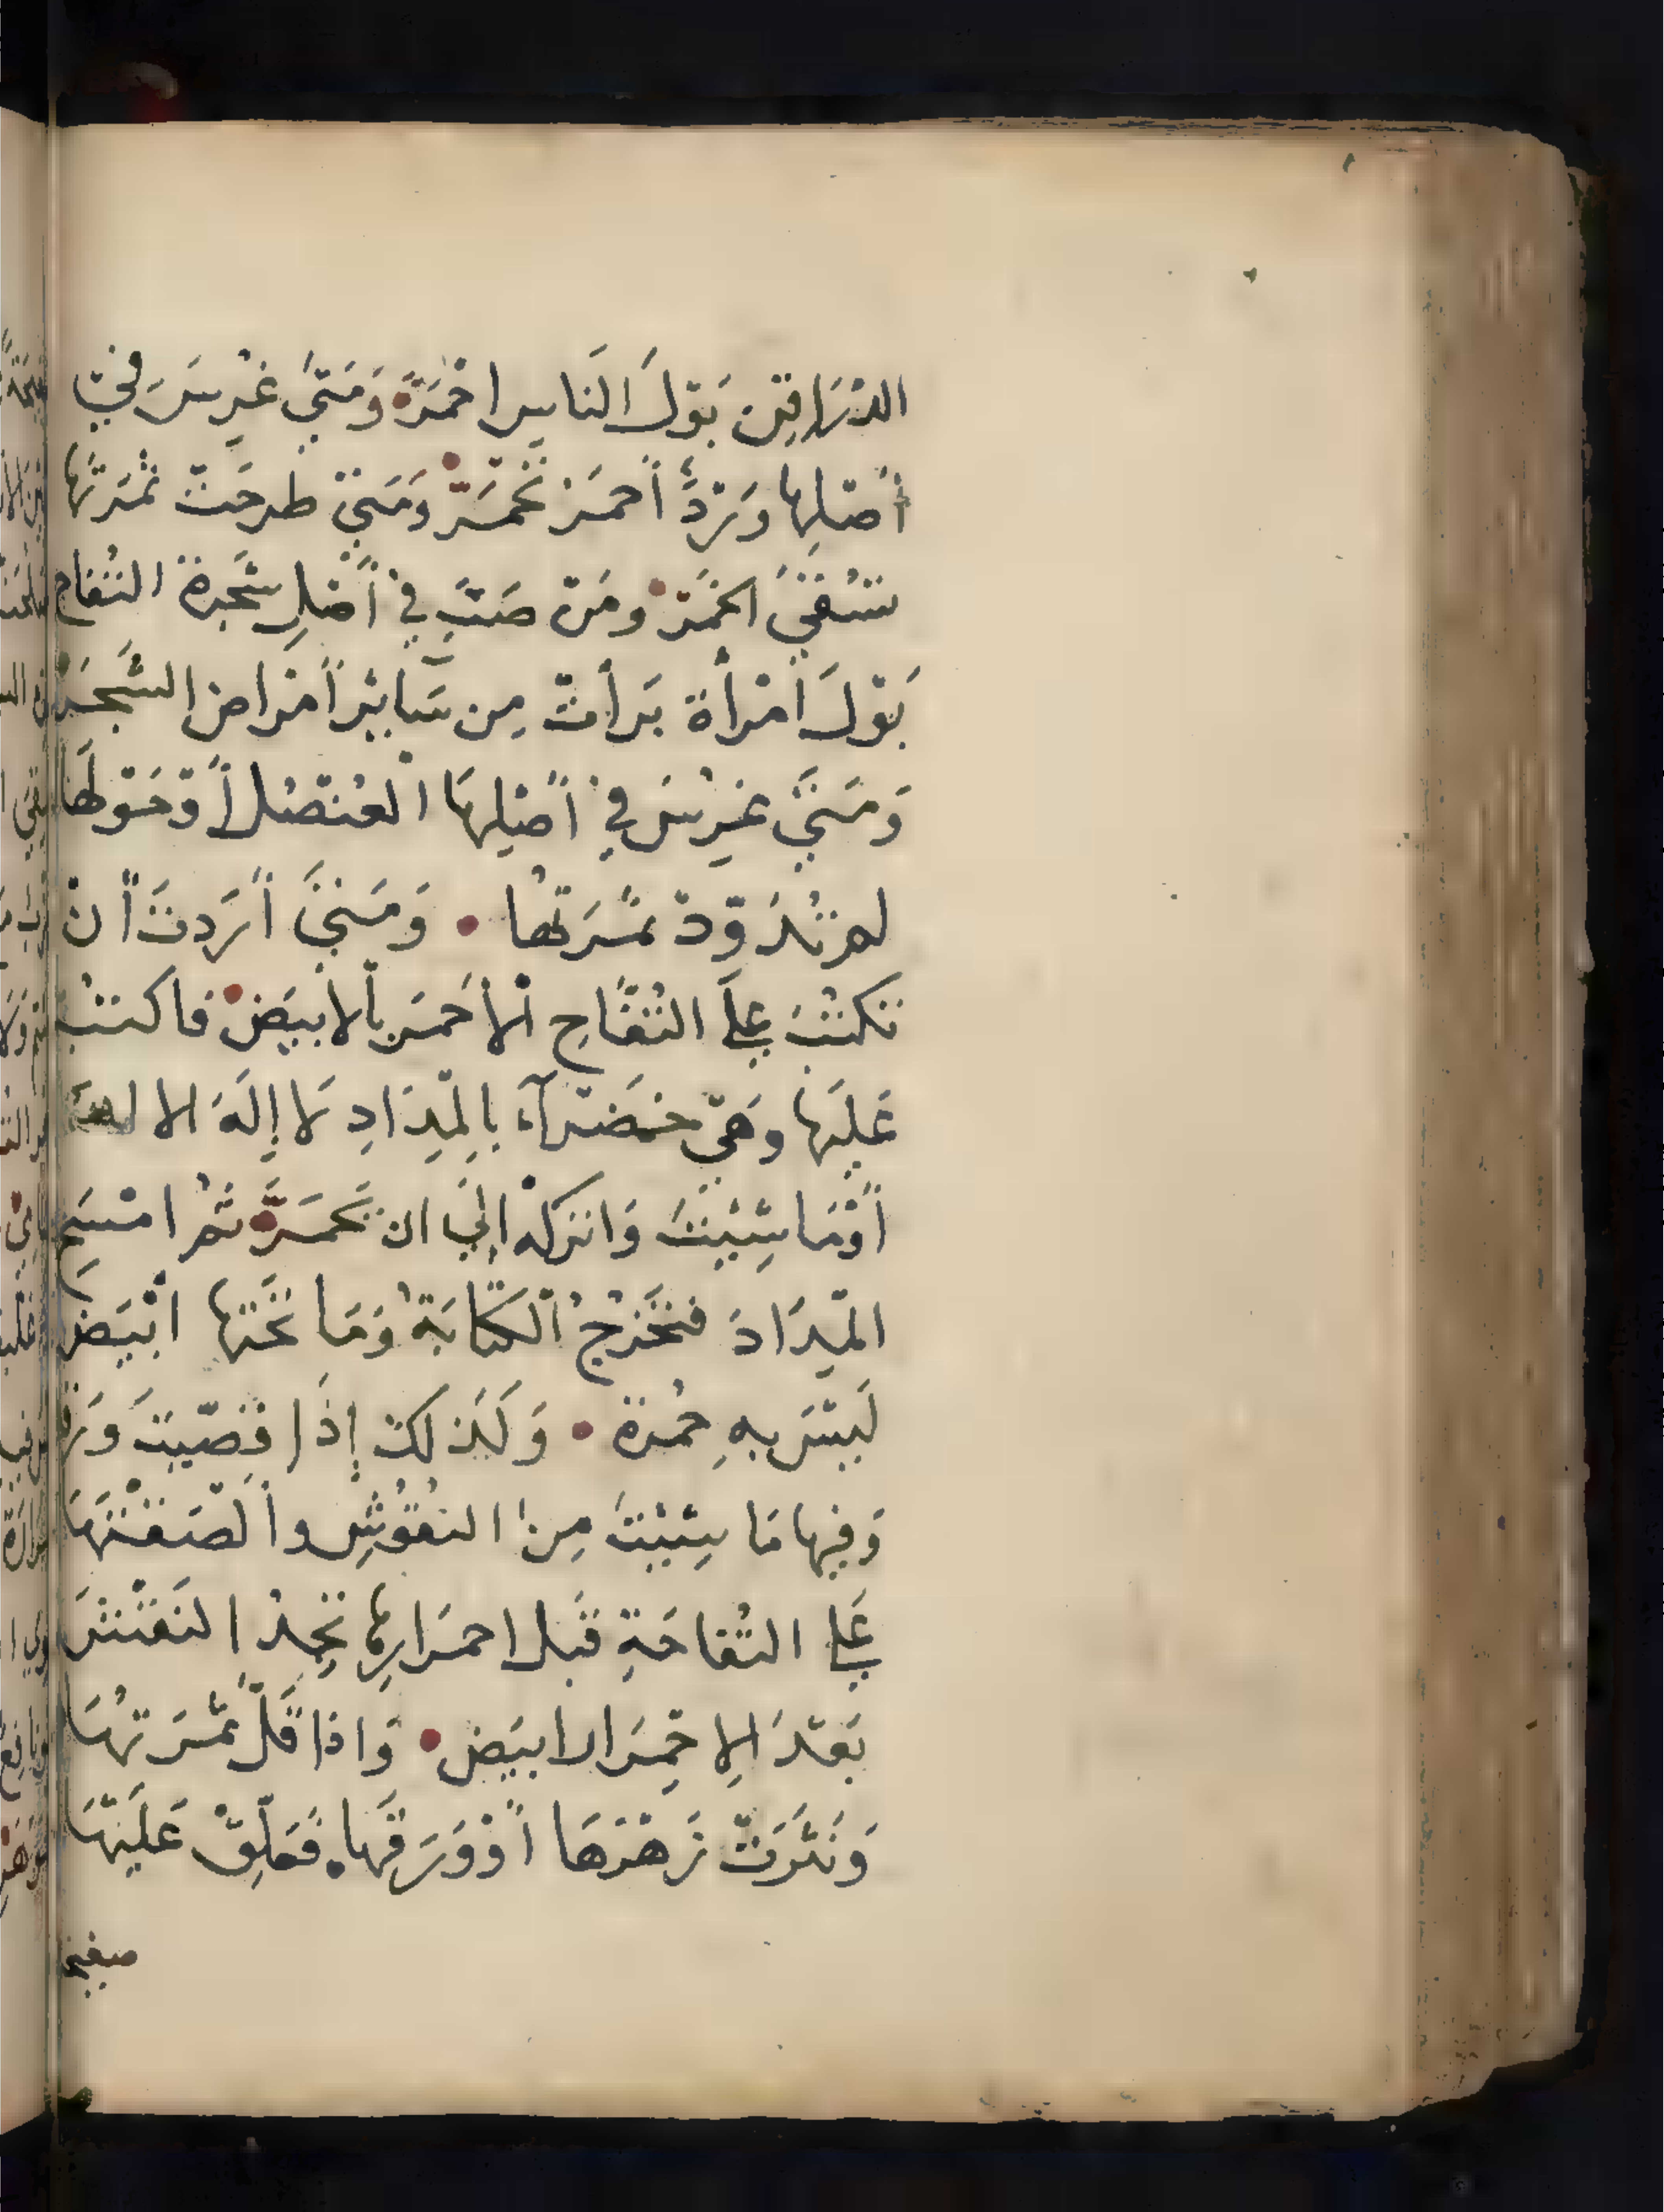 الدراقن بَوْلَ الناسِ احْمَرَّ وَمَتَى غُرِسَ فِي
أصْلِها وَرْدٌ أحمَر تحْمَرّ وَمَتى طرحَتْ ثمَرَتَها
تُسْقَى الخَمْرَ ومَنْ صَبَّ فِي أصْلِ شَجرة التُفاح
بَوْلَ امْرأة بَرأتْ مِن سَايْر أمْراض الشَجَر
وَمَتَى غُرِسَ فِي أصْلِهَا العُنْصُل أوْ حَوْلَها
لم تُدَوِّدْ ثمَرَتها . وَمَتَى أرَدتَ أنْ
تكتُبَ علَى التُفَّاحِ الأحمَر بالأبيَضْ فاكتُبْ
عَلَيها وهَي خَضْرآء بالمِدَادِ لا إلَهَ الا الله
أوْمَا شِيْتَ وَاتركه إلَى ان تحْمَرَّ ثُم امْسَحِ
المِدَادَ فتَخرُجُ الكتابَةُ وَمَا تحْتَها ابْيَض
لَيْسَ بهِ حُمرَة . وَكَذلكَ إذَا قصّيتَ وَرَقـ
وَفيها مَا شِيْتَ مِن النقُوشِ والصَقْتَها
عَلى التُفاحَةِ قبل احمَرارِها تجِدُ النَقْشَ
بَعْدَ الِاحْمِرَار ابيَض . وَاذا قَلَّ ثمَرَتُهَا
وَنَثَرَتْ زَهْرَهَا أوْ وَرَقَها. فَعَلِّقْ عَلَيْهَا
صفيحـ